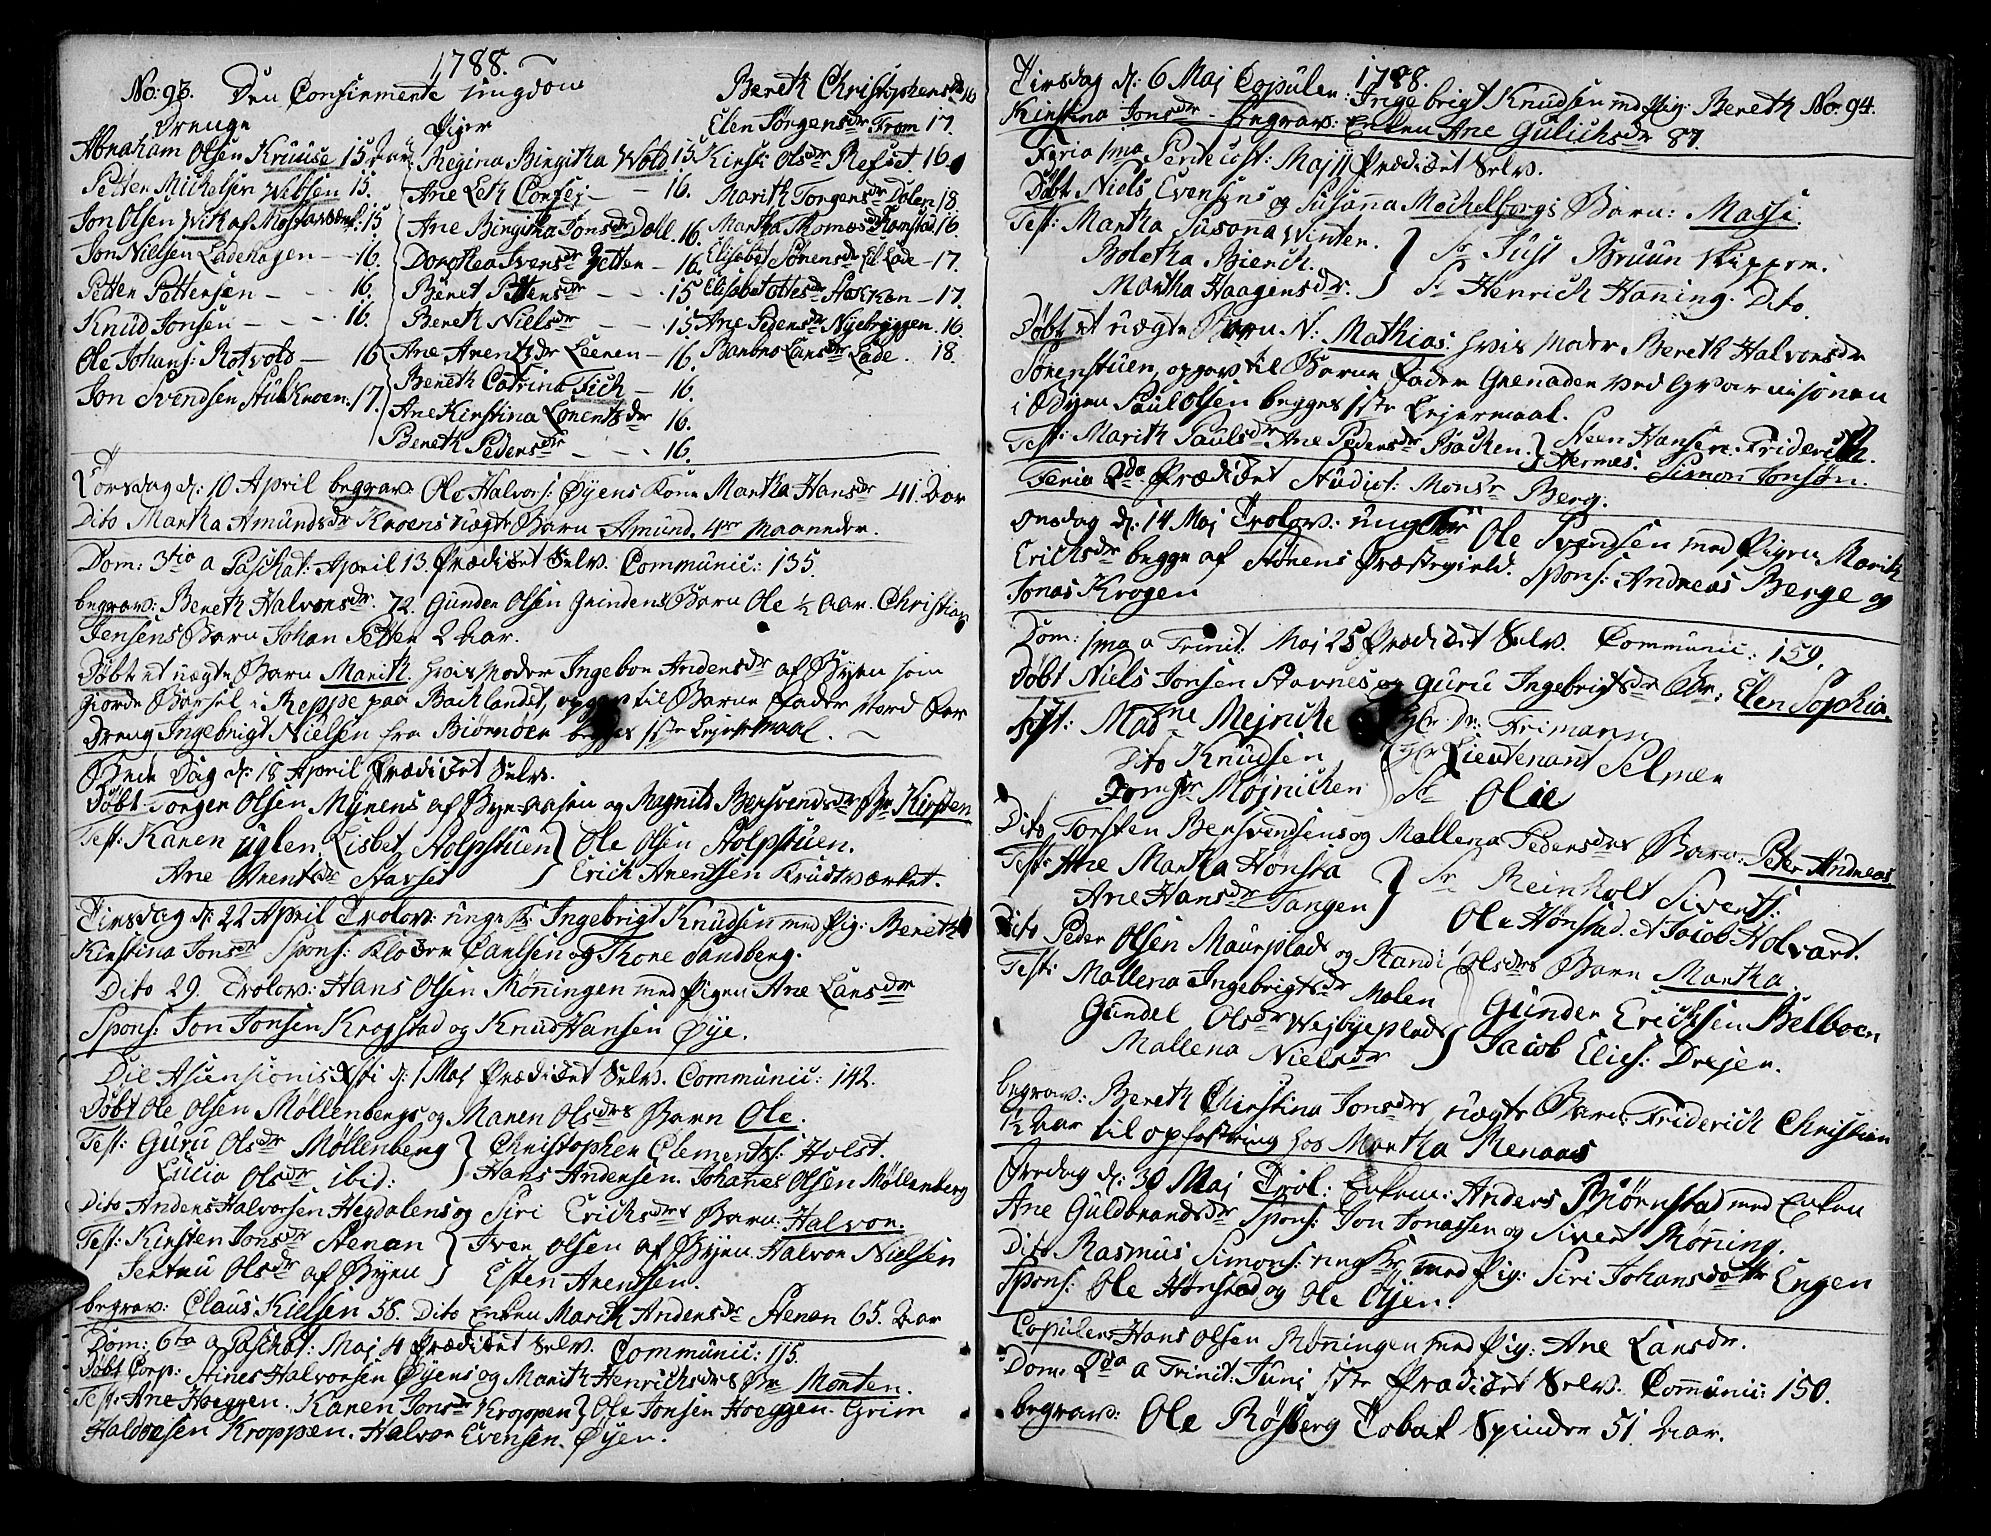 1788.
No: 93. Den Confirmerte ungdom
Drenge
Abraham Olsen Kruuse 15 Aar
Petter Michelsen Wibsen 15.
Jon Olsen Wik af 15
Jon Nielsen Ladehagen - - 16.
Petter Pettersen - - 16.
Knud Jonsen - - - 16.
Ole Johans: Rotvold - 16
Jon Svendsen 17.
Piger
Regina Birgitha Wold 15
Ane Leth - 16.
Ane Birgitha Jonsdr Dall 16.
Dorothea Ivensdr Zetter - 16.
Beret Pettersdr - - 15
Bereth Nielsdr - - 15
Ane Arentzdr Leeren - 16.
Bereth Catrina Fich - 16.
Ane Kirstina Lorentzdr 16.
Bereth Pedersdr - - - 16.
Bereth Christophersdr 16
Elen Jørgensdr From 17.
Kirst: Olsdr Refset. 16.
Marith Torgersdr Dolen 18
Martha Thomasdr Ramstad 16
Elisabet Sørensdr Lil Lade - 17.
Elisabet Ottesdr Stokkan - 17.
Ane Pedersdr Nyebryggen. 16
Barbro Larsdr Lade. 18.
Torsdag d: 10 April begrav: Ole Halvors: Øyens Kone Martha Hansdr 41. Aar
Dito Martha Amundsdr Kroens uægte Barn Amund. 4re Maaneder.
Dom: 3tia a Paschat: April 13. Prædicet Selv. Communic: 135.
begrav: Bereth Halvorsdr. 72. Gunder Olsen Grindens Barn Ole ½ Aar. Christian
Jensens Barn Johan Petter 2 Aar.
Døbt et uægte Barn Marith. hvis Moder Ingebor Andersdr af Byen som
giorde Barsel i Reppe paa Backlandet, opgav til Barne Fader Nord Far
Dreng Ingebrigt Nielsen fra Biørnøer begges 1ste Lejermaal.
Bede Dag d: 18 April Prædicet Selv.
Døbt Torger Olsen Myrens af Bynæssen og Magnild Bersvendsdr Br Kirsten
Test: Karen Uglen, Lisbet Holpstuen } Ole Olsen Holpstuen.
Ane Arentsdr Stavset } Erich Arentsen Krudtværket.
Tirsdag d: 22 April Trolov: unge K: Ingebrigt Knudsen med Pig: Bereth
Kirstina Jonsdr Spons: Klokren Carlsen og Thore Sandberg.
Dito 29. Trolov: Hans Olsen Røningen med Pigen Ane Larsdr
Spons: Jon Jonsen Krogstad og Knud Hansen Øye.
Die Asensionis Xsti d: 1 Maj Prædicet Selv. Communic: 142.
Døbt Ole Olsen Møllenbergs og Maren Olsdrs Barn Ole.
Test: Guru Olsdr Møllenberg } Christopher Clements: Holst.
Lucia Olsdr ibid: } Hans Andersen. Johanes Olsen Møllenberg
Dito Anders Halvorsen Hegdalens og Siri Erichsdrs Barn: Halvor.
Test: Kirsten Jonsdr Stenan } Iver Olsen af Byen. Halvor Nielsen
Olsdr af Byen } Esten Arentsen.
begrav: Claus Kielsen 58. Dito Enken Marith Andersdr Stenan 65. Aar
Dom: 6ta a Paschat: Maj 4 Prædicet Selv. Communic: 115.
Døbt Corp: Halvorsen Øyens og Marith Henrichsdrs Br Morten.
Test: Ane Hoeggen. Karen Jonsdr Kroppen } Ole Jonsen Hoeggen. Grim
Haldorsen Kroppen. Halvor Evensen. Øyen.
1788.
Tirsdag d: 6 Maj Copuler: Ingebrigt Knudsen med Pig: Bereth No: 94.
Kirstina Jonsdr - begrav: Enken Ane Gulichsdr 87.
Feria 1ma Pentecost: Maj 11 Prædicet Selv.
Døbt Niels Evensens og Susanna Mechelborgs Barn: Massi
Test: Martha Susanna Winter. } Sr Just Bruun Skipper.
Boletha Bierch.
Martha Haagensdr. } Sr Henrich Haning. Dito
Døbt et uægte Barn N: Mathias. hvis Moder Bereth Halvorsdr
Sørenstuen, opgav til Barne Fader Grenader ved Gvarnisonen
i Byen Paul Olsen begges 1ste Lejermaal.
Test: Marith Paulsdr Ane Pedersdr Backen. } Steen Hansen. Friderich
Hermes. Simon Jonsøn.
Feria 2da Prædicet Studios: Monsr Berg.
Onsdag d: 14 Maj Trolov: ung Kar Ole Svendsen med Pigen Marith
Erichsdr begge af Størens Præstegield. Spons: Andreas Berge og
Jonas Krogen
Dom: 1ma a Trinit. Maj 25 Prædicet Selv. Communic: 159.
Døbt Niels Jonsen Stavnes og Guru Ingebrigtsdr Br: Elen Sophia.
Test: Madme Mejniche Hr. Dr: Frimann
Dito Knudsen Hr Lieutenant Selmer
Jomfr Møjnichen } Sr Olie
Dito Torsten Bersvendsens og Mallena Pedersdrs Barn: Peter Andreas
Test: Ane Martha Hønsta } Sr Reinholt Siverts:
Ane Hansdr Tangen } Ole Hønstad. N Jacob Holvart.
Dito Peder Olsen Maurplads og Randi Olsdrs Barn Martha.
Test: Mallena Ingebrigtsdr Molen Gunder Erichsen Belboen
Gundel Olsdr Wejbyeplads } Jacob Elies: Drejer.
Mallena Nielsdr
begrav: Bereth Christina Jonsdrs uægte Barn: Friderich Christian
½ Aar til opfostring hos Martha Renaas
Fredag d: 30 Maj Trol: Enkem: Anders Biørnstad med Enken
Ane Guldbrandsdr Spons: Jon Jonassen og Sivert Røning.
Dito Rasmus Simons: ung Kr med Pig: Siri Johansdatter Engen
Spons: Ole Hønstad og Ole Olsen.
Copuler Hans Olsen Røningen med Pig: Ane Larsdr.
Dom: 2da a Trinit: Junj 1ste Prædicet Selv. Communic: 150.
begrav: Ole Røsberg Tobak Spinder 51 Aar.